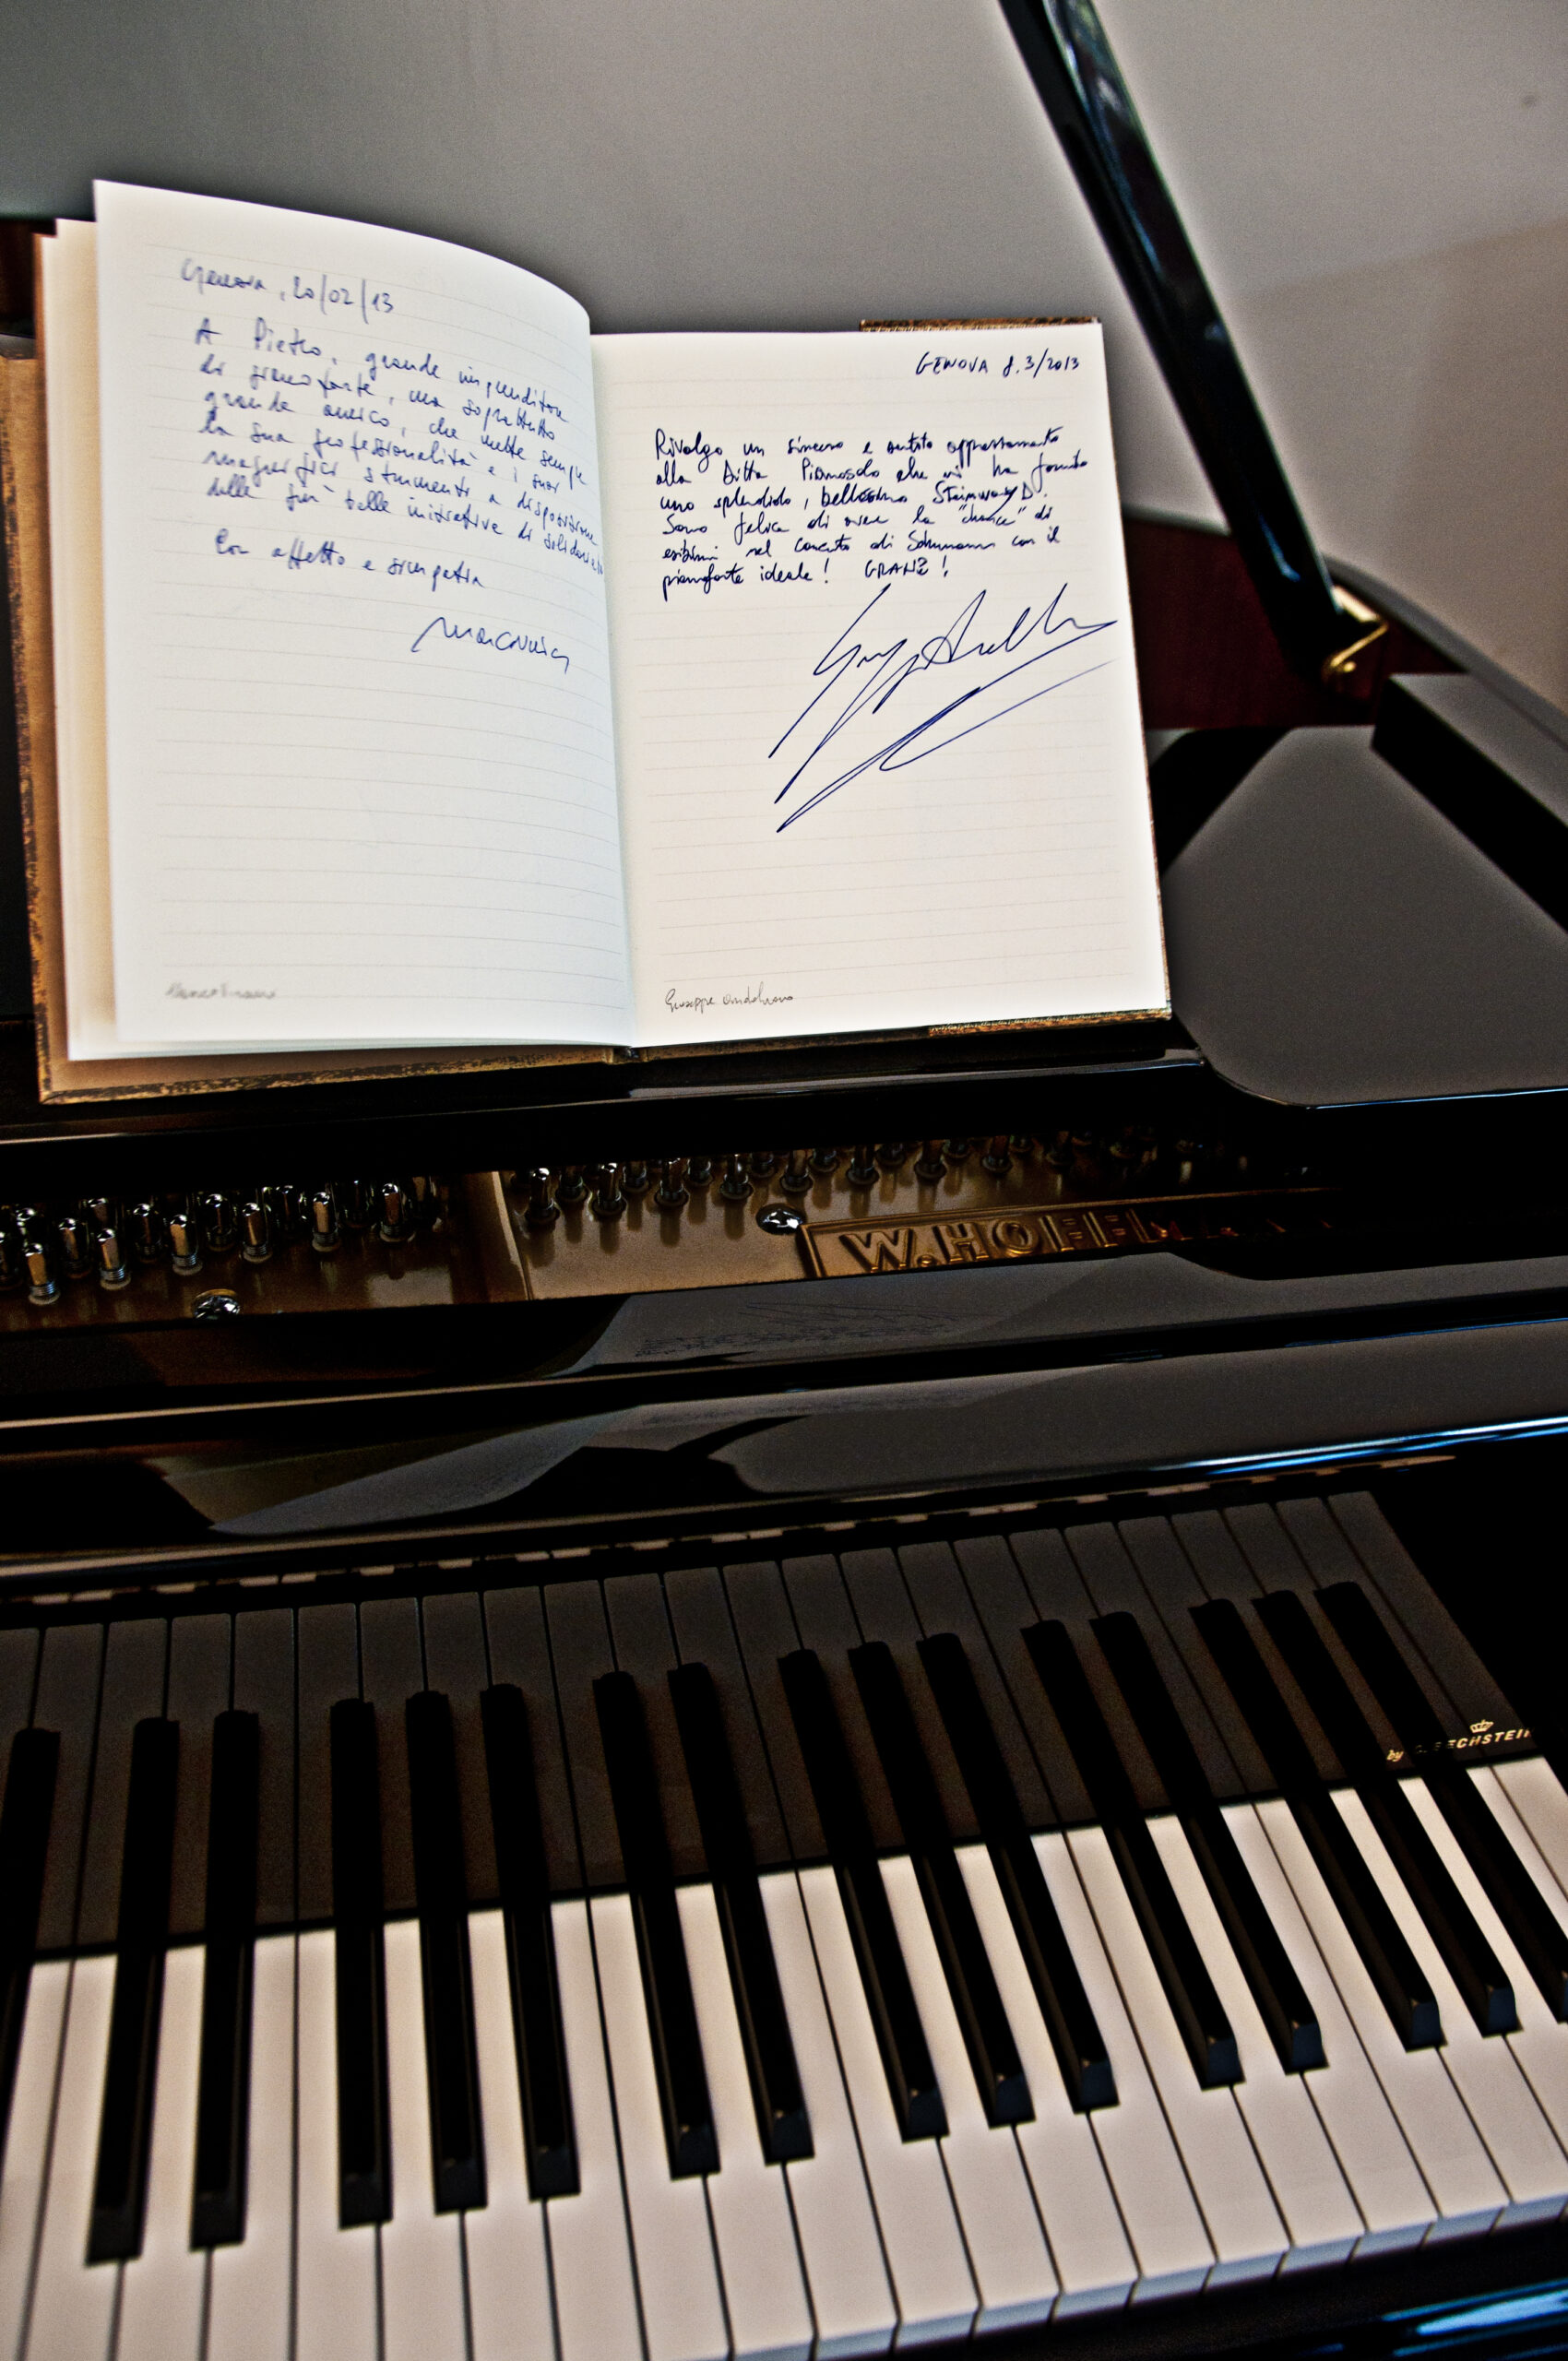 Genova, 20/02/13
A Pietro, grande imprenditore
di pianoforte, ma soprattutto
grande amico, che mette sempre
la sua professionalità e i suoi
magnifici strumenti a disposizione
delle più belle iniziative di solidarietà
Con affetto e simpatia
GENOVA 8.3/2013
Rivolgo un sincero e sentito apprezzamento
alla Ditta Pianosolo che mi ha fornito
uno splendido, bellissimo Steinway D.
Sono felice di avere la "chance" di
esibirmi nel Concerto di Schumann con il
pianoforte ideale! GRANZ!
Giuseppe Andaloro
W.HOFFMANN
by C. BECHSTEIN